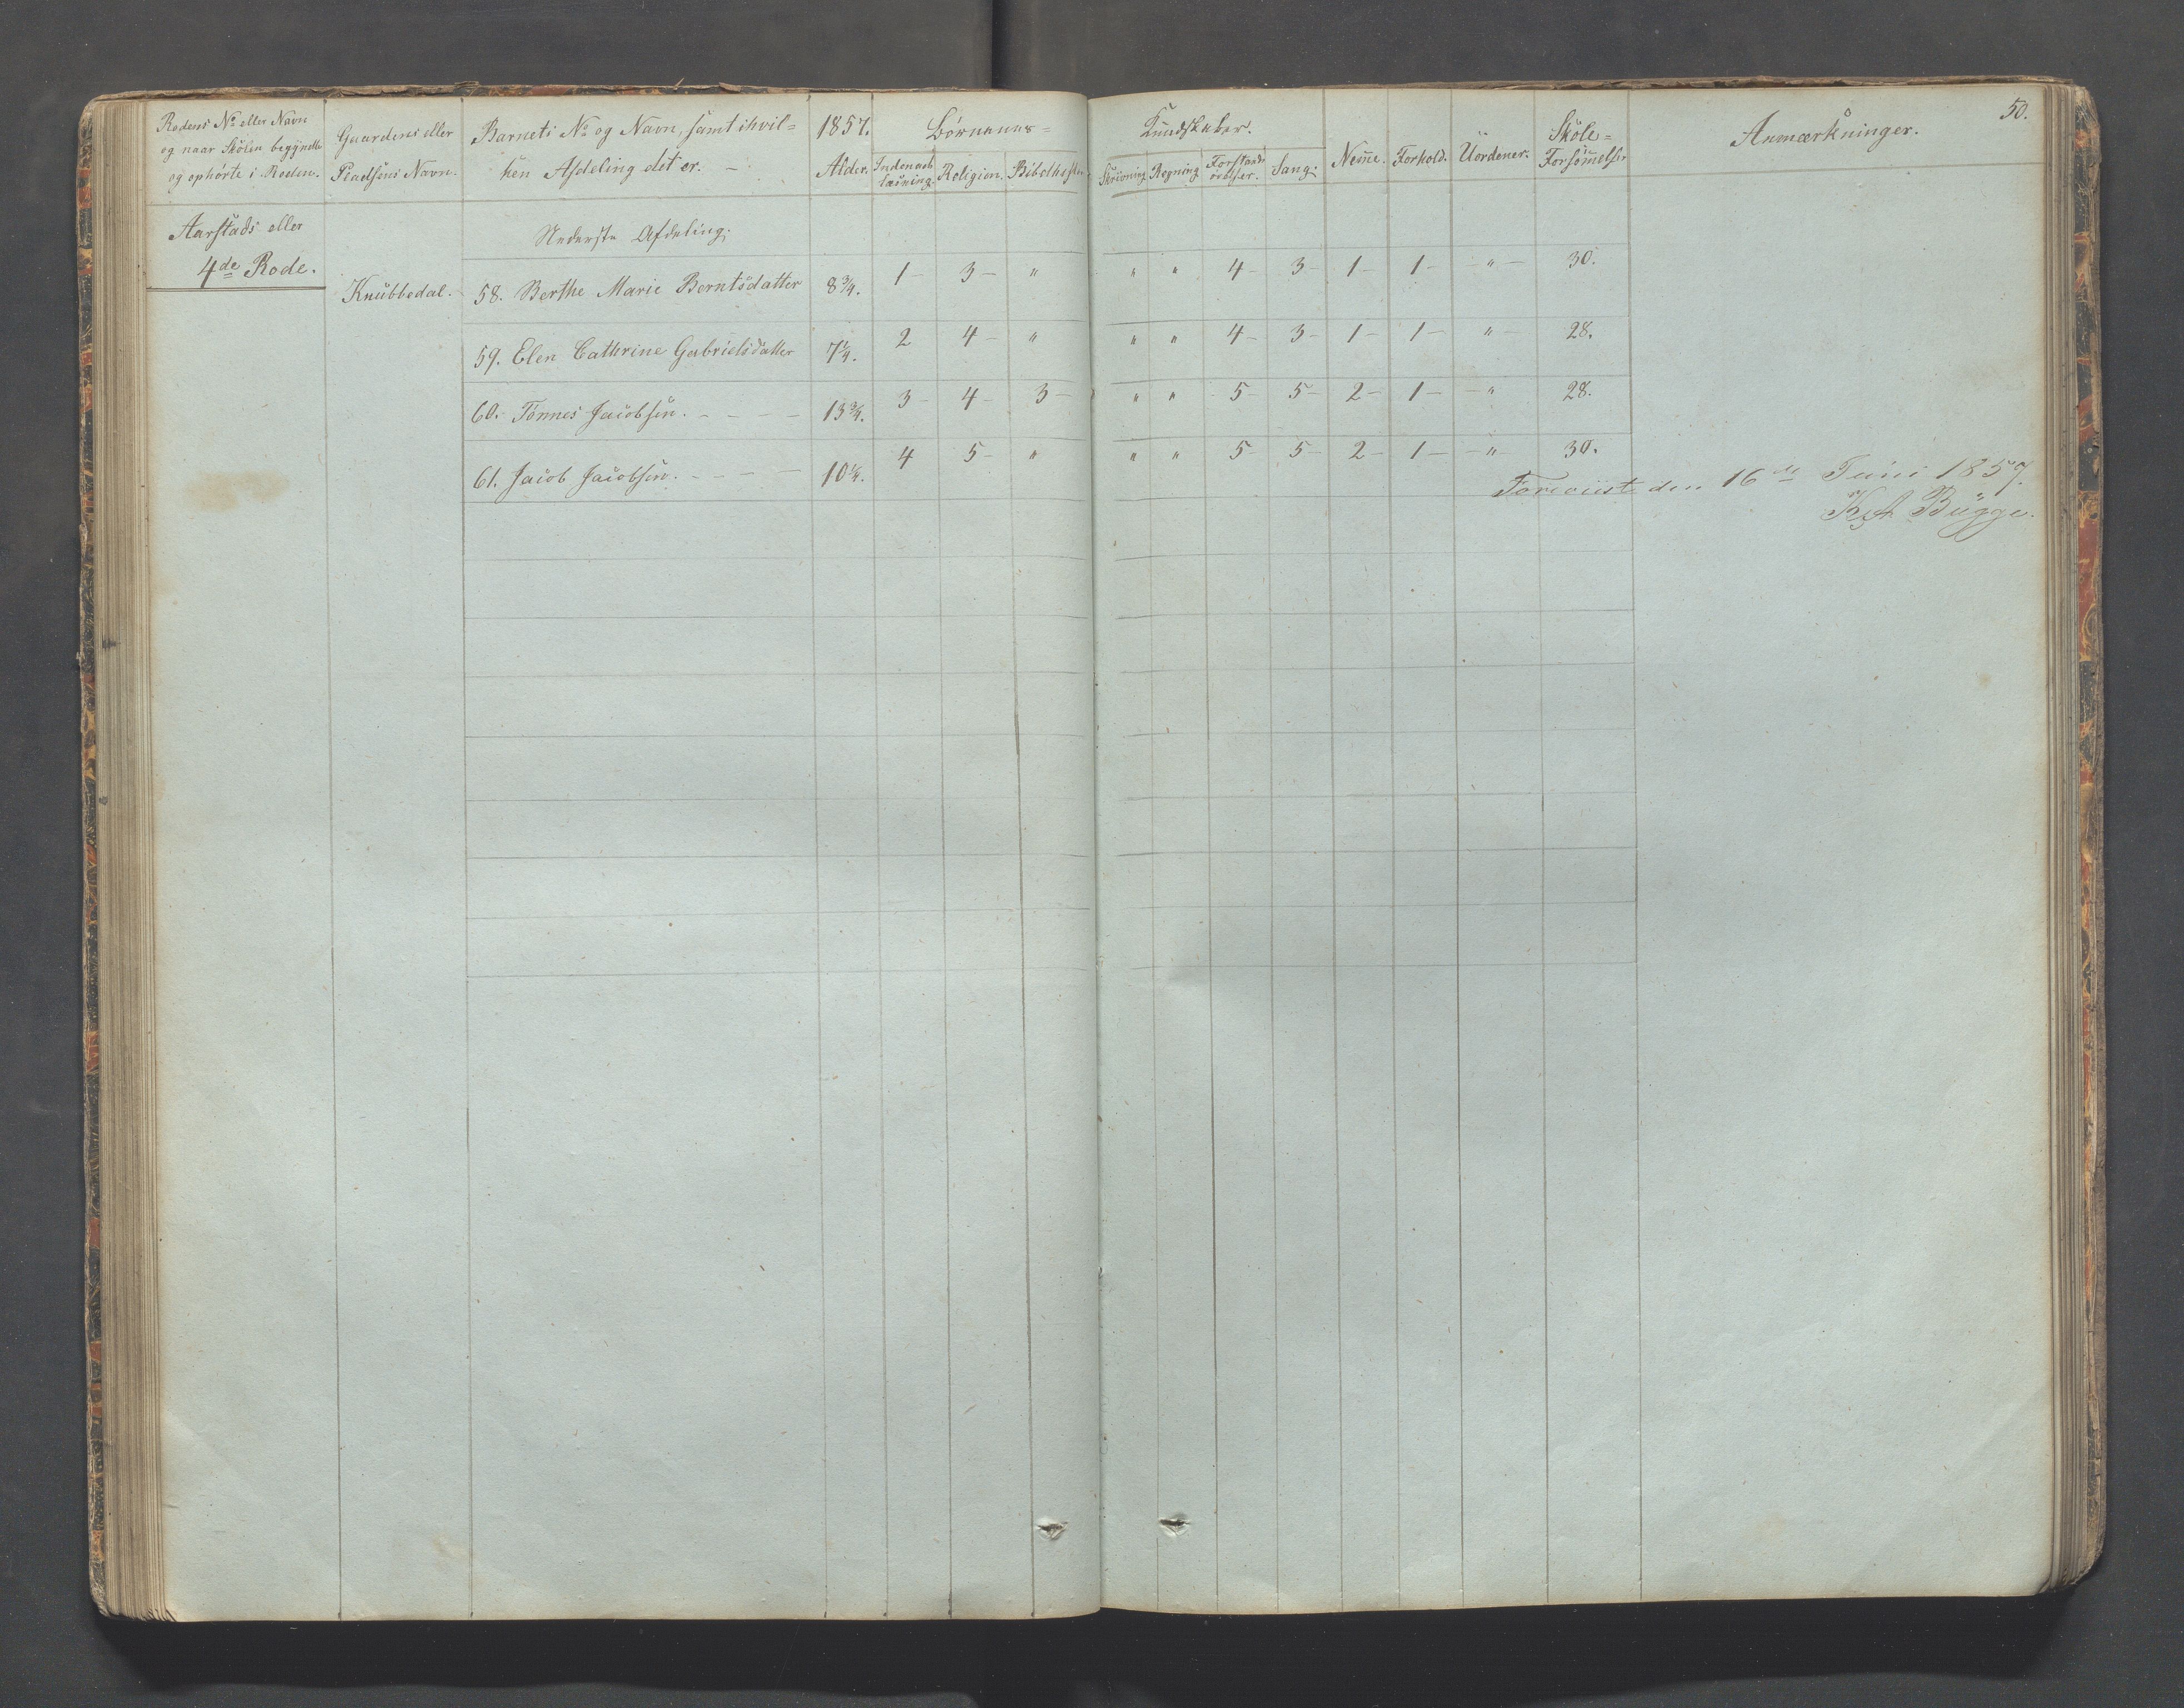 50.
Rodens No eller Navn
og naar Skolen begyndte
og ophörte i Roden.
Gaardens eller
Pladsens Navn.
Barnets No og Navn, samt i hvil=
ken Afdeling det er. –
1857.
Alder.
Börnenes=
Indenad
læsning.
Religion.
Bibelhist
Kundskaber.
Skrivning
Regning
Forstands
övelser.
Sang.
Nemme.
Forhold.
Uordener.
Skole=
Forsömmelser
Anmærkninger.
Aarstads eller
4de Rode.
Nederste Afdeling.
Knubbedal. 58. Berthe Marie Berntsdatter 8 3/4. 1 – 3 – " " " 4 – 3 – 1 – 1 – " – 30.
59. Elen Cathrine Gabrielsdatter 7 1/4. 2 4 – " " " 4 – 3 – 1 – 1 – " – 28.
60. Tönnes Jacobsen. – – – – 13 3/4. 3 – 4 – 3 – " " 5 – 5 – 2 – 1 – – " 28.
61. Jacob Jacobsen. – – – 10 1/4. 4 5 – " " " 5 – 5 – 2 – 1 – – " – 30.
Foreviist den 16de Juni 1857.
Bugge.